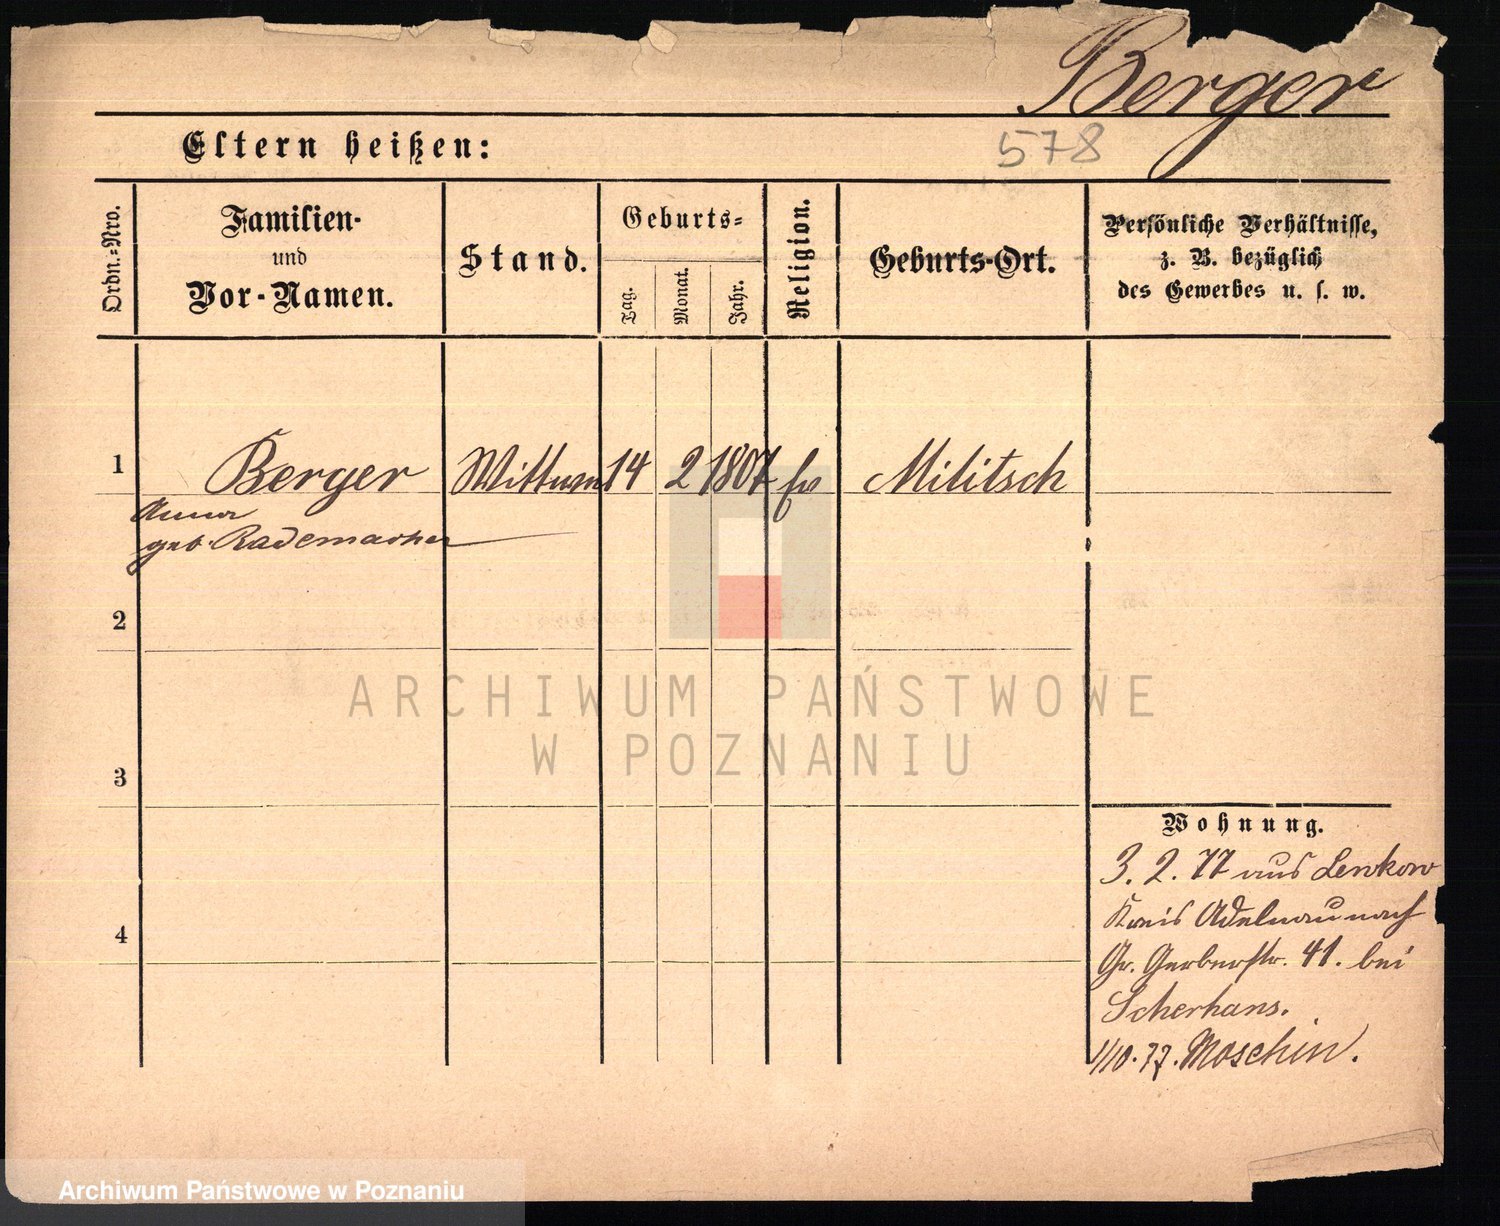 Berger
Eltern heißen:
578
Ordn.-Nro.
Familien-
und
Vor-Namen.
Stand.
Geburts-
Tag.
Monat.
Jahr.
Religion.
Geburts-Ort.
Persönliche Verhältnisse,
z. B. bezüglich
des Gewerbes u. s. w.
1
Berger
Wittwe
14
2
1807
ev
Militsch
Anna
geb. Rademacher
2
3
4
ARCHIWUM PAŃSTWOWE
W POZNANIU
Wohnung.
3. 2. 77 aus Lenkow
Kreis Adelnau nach
Gr. Gerberstr. 41. bei
Scherhans.
1/10. 77. Moschin.
Archiwum Państwowe w Poznaniu